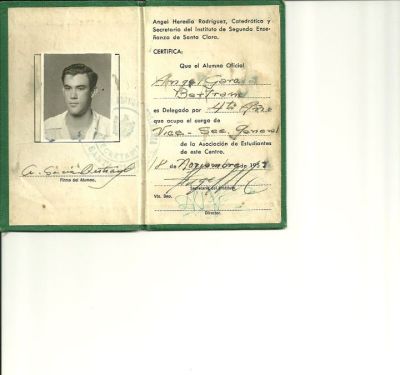 Firma del Alumno.
Angel Heredia Rodríguez, Catedrático y
Secretario del Instituto de Segunda Ense-
ñanza de Santa Clara.
CERTIFICA:
Que el Alumno Oficial
Angel García
Beltrán
es Delegado por 4to Año
que ocupa el cargo de
Vice-Sec. General
de la Asociación de Estudiantes
de este Centro.
Noviembre de
Secretario del Instituto.
Vto. Bno.
Director.